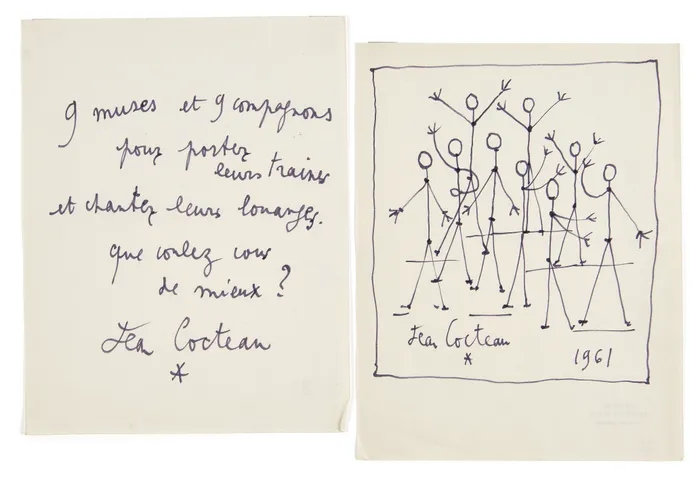 9 muses et 9 compagnons
pour porter
leurs traines
et chanter leurs louanges.
que voulez vous
de mieux?
Jean Cocteau
*
Jean Cocteau
*
1961